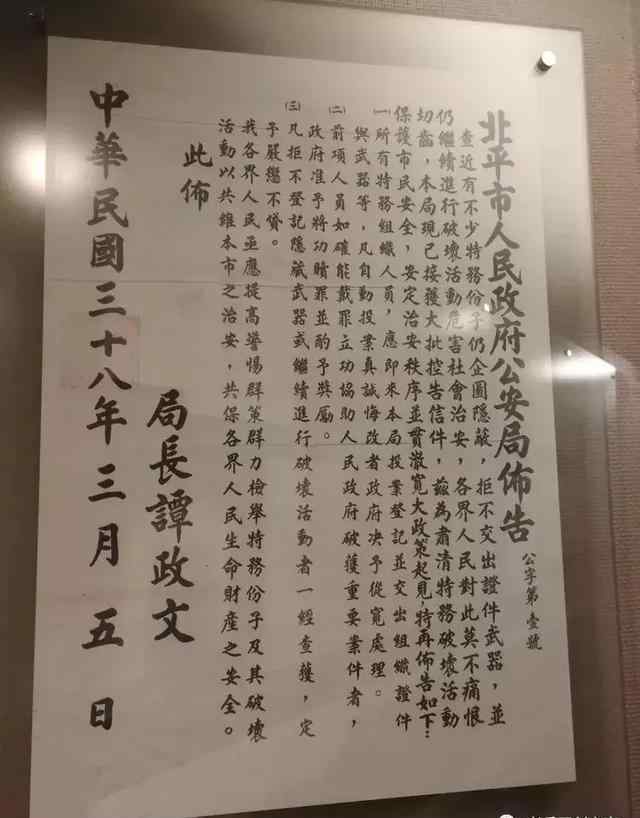 北平市人民政府公安局佈告
公字第壹號
查近有不少特務份子仍企圖隱蔽，拒不交出證件武器，並
仍繼續進行破壞活動危害社會治安，各界人民對此莫不痛恨
切齒，本局現已接獲大批控告信件，茲為肅清特務破壞活動
保護市民安全，安定治安秩序並貫澈寬大政策起見，特再佈告如下：
㈠所有特務組織人員，應即來本局投案登記並交出組織證件
與武器等，凡自動投案真誠悔改者政府决予從寬處理。
㈡前項人員如確能戴罪立功協助人民政府破獲重要案件者，
政府准予將功贖罪並酌予獎勵。
㈢凡拒不登記隱藏武器或繼續進行破壞活動者一經查獲，定
予嚴懲不貸。
我各界人民亟應提高警惕群策群力檢舉特務份子及其破壞
活動以共維本市之治安，共保各界人民生命財產之安全。
此佈
局長譚政文
中華民國三十八年三月五日